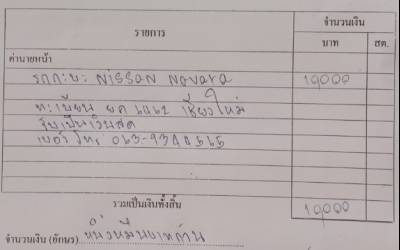 รายการ
จำนวนเงิน
บาท
สต.
ค่านายหน้า
รถกะบะ Nissan Navara 10,000
ทะเบียน เชียงใหม่
รับเป็นเงินสด
เบอร์โทร
รวมเป็นเงินทั้งสิ้น 10,000
จำนวนเงิน (อักษร) หนึ่งหมื่นบาทถ้วน